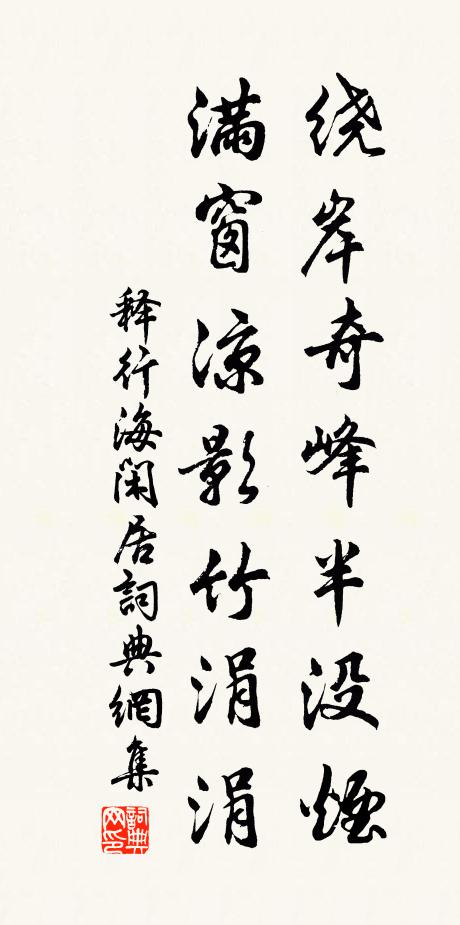 绕岸奇峰半没烟
满窗凉影竹涓涓
释行海闲居詞典網集
詞典网印